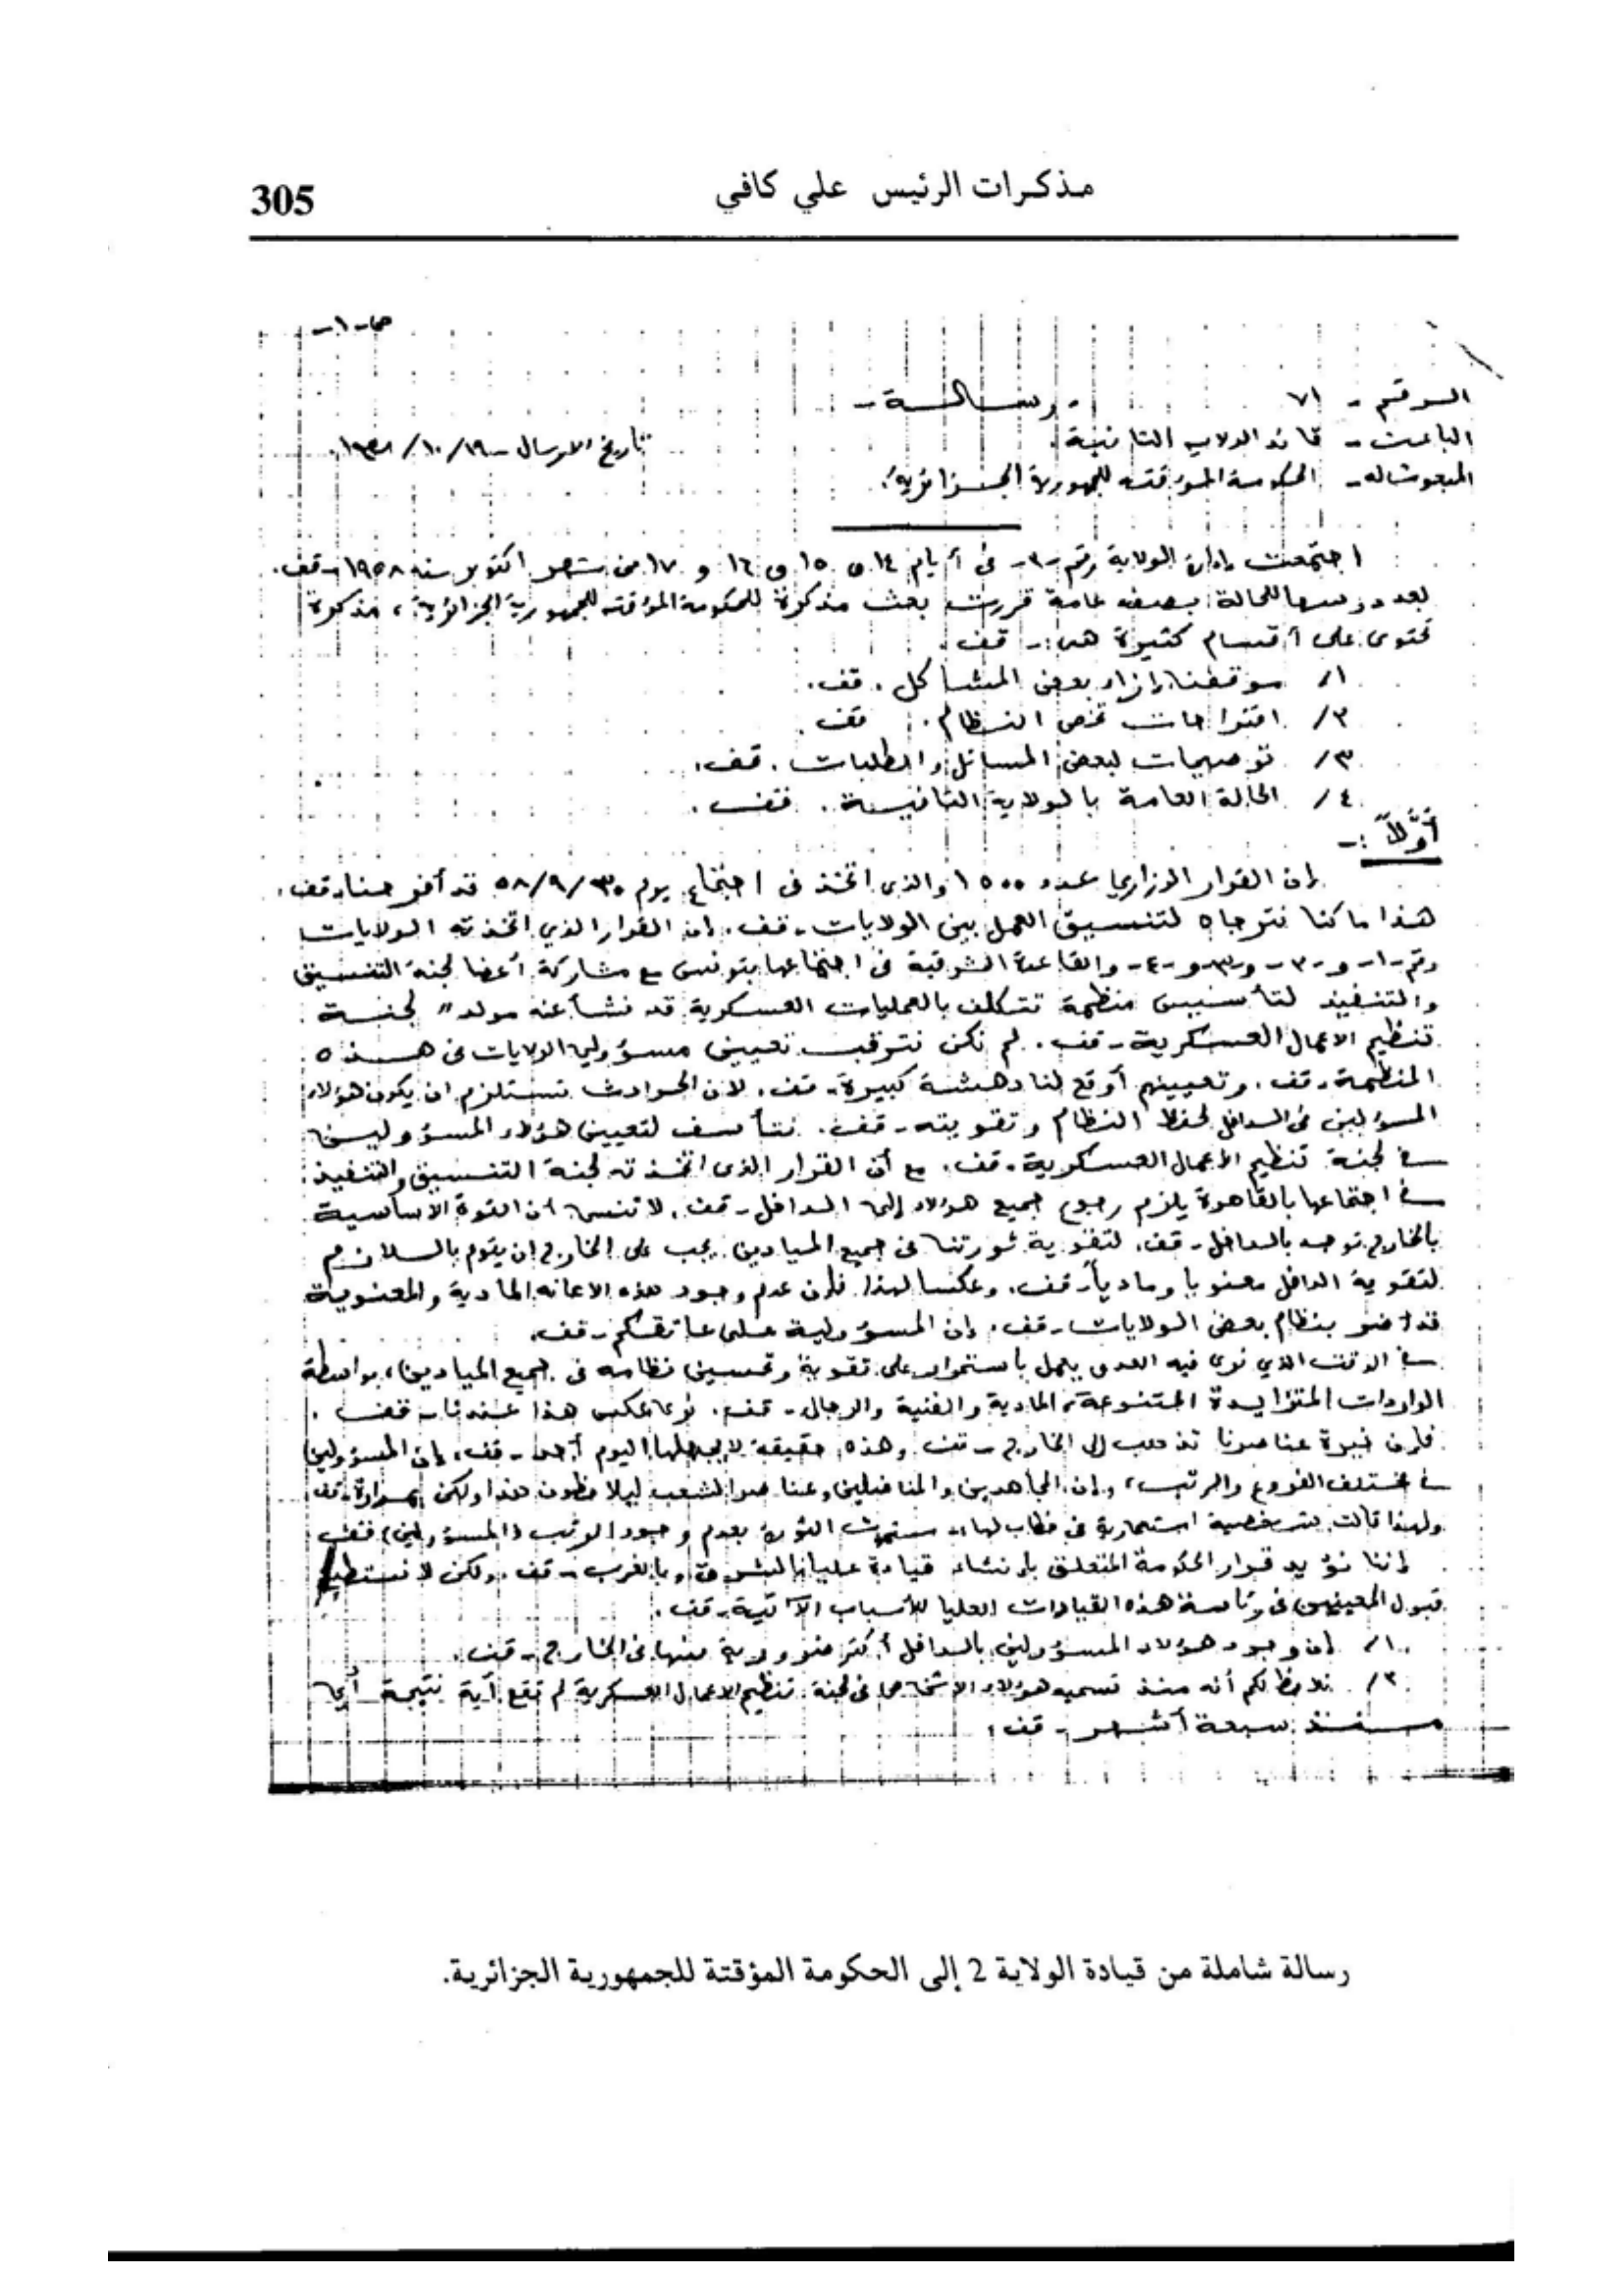 305
مذكرات الرئيس علي كافي
ص-١-
الرقم - ٧١
- رسالة -
الباعث - قائد الولاية الثانية.
تاريخ الارسال - ١٩/١٠/١٩٥٨.
المبعوث له - الحكومة المؤقتة للجمهورية الجزائرية.
اجتمعت إدارة الولاية رقم -٢- في أيام ١٤ و ١٥ و ١٦ و ١٧ من شهر اكتوبر سنه ١٩٥٨ - قف.
بعد درسها للحالة بصفه عامة قررت بعث مذكرة للحكومة المؤقته للجمهورية الجزائرية، مذكرة
تحتوى على أقسام كثيرة هى :- قف.
١/ موقفنا إزاء بعض المشاكل. قف.
٢/ اقتراحات تخص النظام. قف.
٣/ توصيات لبعض المسائل والطلبات. قف.
٤/ الحالة العامة بالولاية الثانية. قف.
أوَّلاً :-
إن القرار الوزاري عدد ١٥٠٠ والذى اتخذ فى اجتماع يوم ٣٠/٩/٥٨ قد أقر حسنا. قف.
هذا ما كنا نترجاه لتنسيق العمل بين الولايات - قف. إن القرار الذي اتخذته الولايات
رقم -١- و -٢- و -٣- و -٤- والقاعدة الشرقية فى اجتماعها بتونس مع مشاركة أعضا لجنة التنسيق
والتنفيذ لتأسيس منظمة تتكلف بالعمليات العسكرية قد نشأ عنه مولد " لجنة
تنظيم الاعمال العسكرية - قف. لم نكن نترقب تعيين مسؤولي الولايات فى هذه
المنظمة - قف. وتعيينهم أوقع لنا دهشة كبيرة - قف. لان الحوادث تستلزم ان يكون هؤلاء
المسؤولين فى الداخل لحفظ النظام وتقويته - قف. نتأسف لتعيين هؤلاء المسؤولين
في لجنة تنظيم الاعمال العسكرية - قف. مع أن القرار الذى اتخذته لجنة التنسيق والتنفيذ
في اجتماعها بالقاهرة يلزم رجوع جميع هؤلاء إلى الداخل - قف. لا تنسى ان القوة الأساسية
بالخارج توجد بالداخل - قف. لتقوية ثورتنا فى جميع الميادين يجب على الخارج ان يقوم باللازم
لتقوية الداخل معنويا وماديا - قف. وعكسا لهذا فإن عدم وجود هذه الاعانه المادية والمعنوية
قد أضر بنظام بعض الولايات - قف. إن المسؤولية على عاتقكم - قف.
في الوقت الذي نرى فيه العدو يعمل باستمرار على تقوية وتحسين نظامه فى جميع الميادين، بواسطة
الواردات المتزايدة المتنوعة، المادية والفنية والرجال - قف. نرى عكس هذا عندنا - قف.
فإن خيرة عناصرنا تذهب إلى الخارج - قف. وهذه حقيقة لا يجهلها اليوم أحد - قف. إن المسؤولين
في مختلف الفروع والرتب، وإن المجاهدين والمناضلين وعناصر الشعب ليلاحظون هذا ولكن بمرارة. قف
ولهذا قالت شخصية استعمارية فى خطاب لها " ستموت الثورة بعدم وجود الرتب (المسؤولين) قف
إننا نؤيد قرار الحكومة المتعلق بإنشاء قيادة عليا بالشرق، وبالغرب - قف. ولكن لا نستطيع
قبول المعينين فى رئاسة هذه القيادات العليا للأسباب الآتية - قف.
١/ إن وجود هؤلاء المسؤولين بالداخل أكثر ضرورية منها فى الخارج - قف.
٢/ نلاحظ لكم أنه منذ تسميه هؤلاء الاشخاص فى لجنة تنظيم الاعمال العسكرية لم تقع أية نتيجة أي
منذ سبعة أشهر - قف.
رسالة شاملة من قيادة الولاية 2 إلى الحكومة المؤقتة للجمهورية الجزائرية.